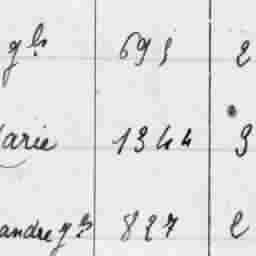 gls 695 2
Marie 1344 3
andre gls 827 2